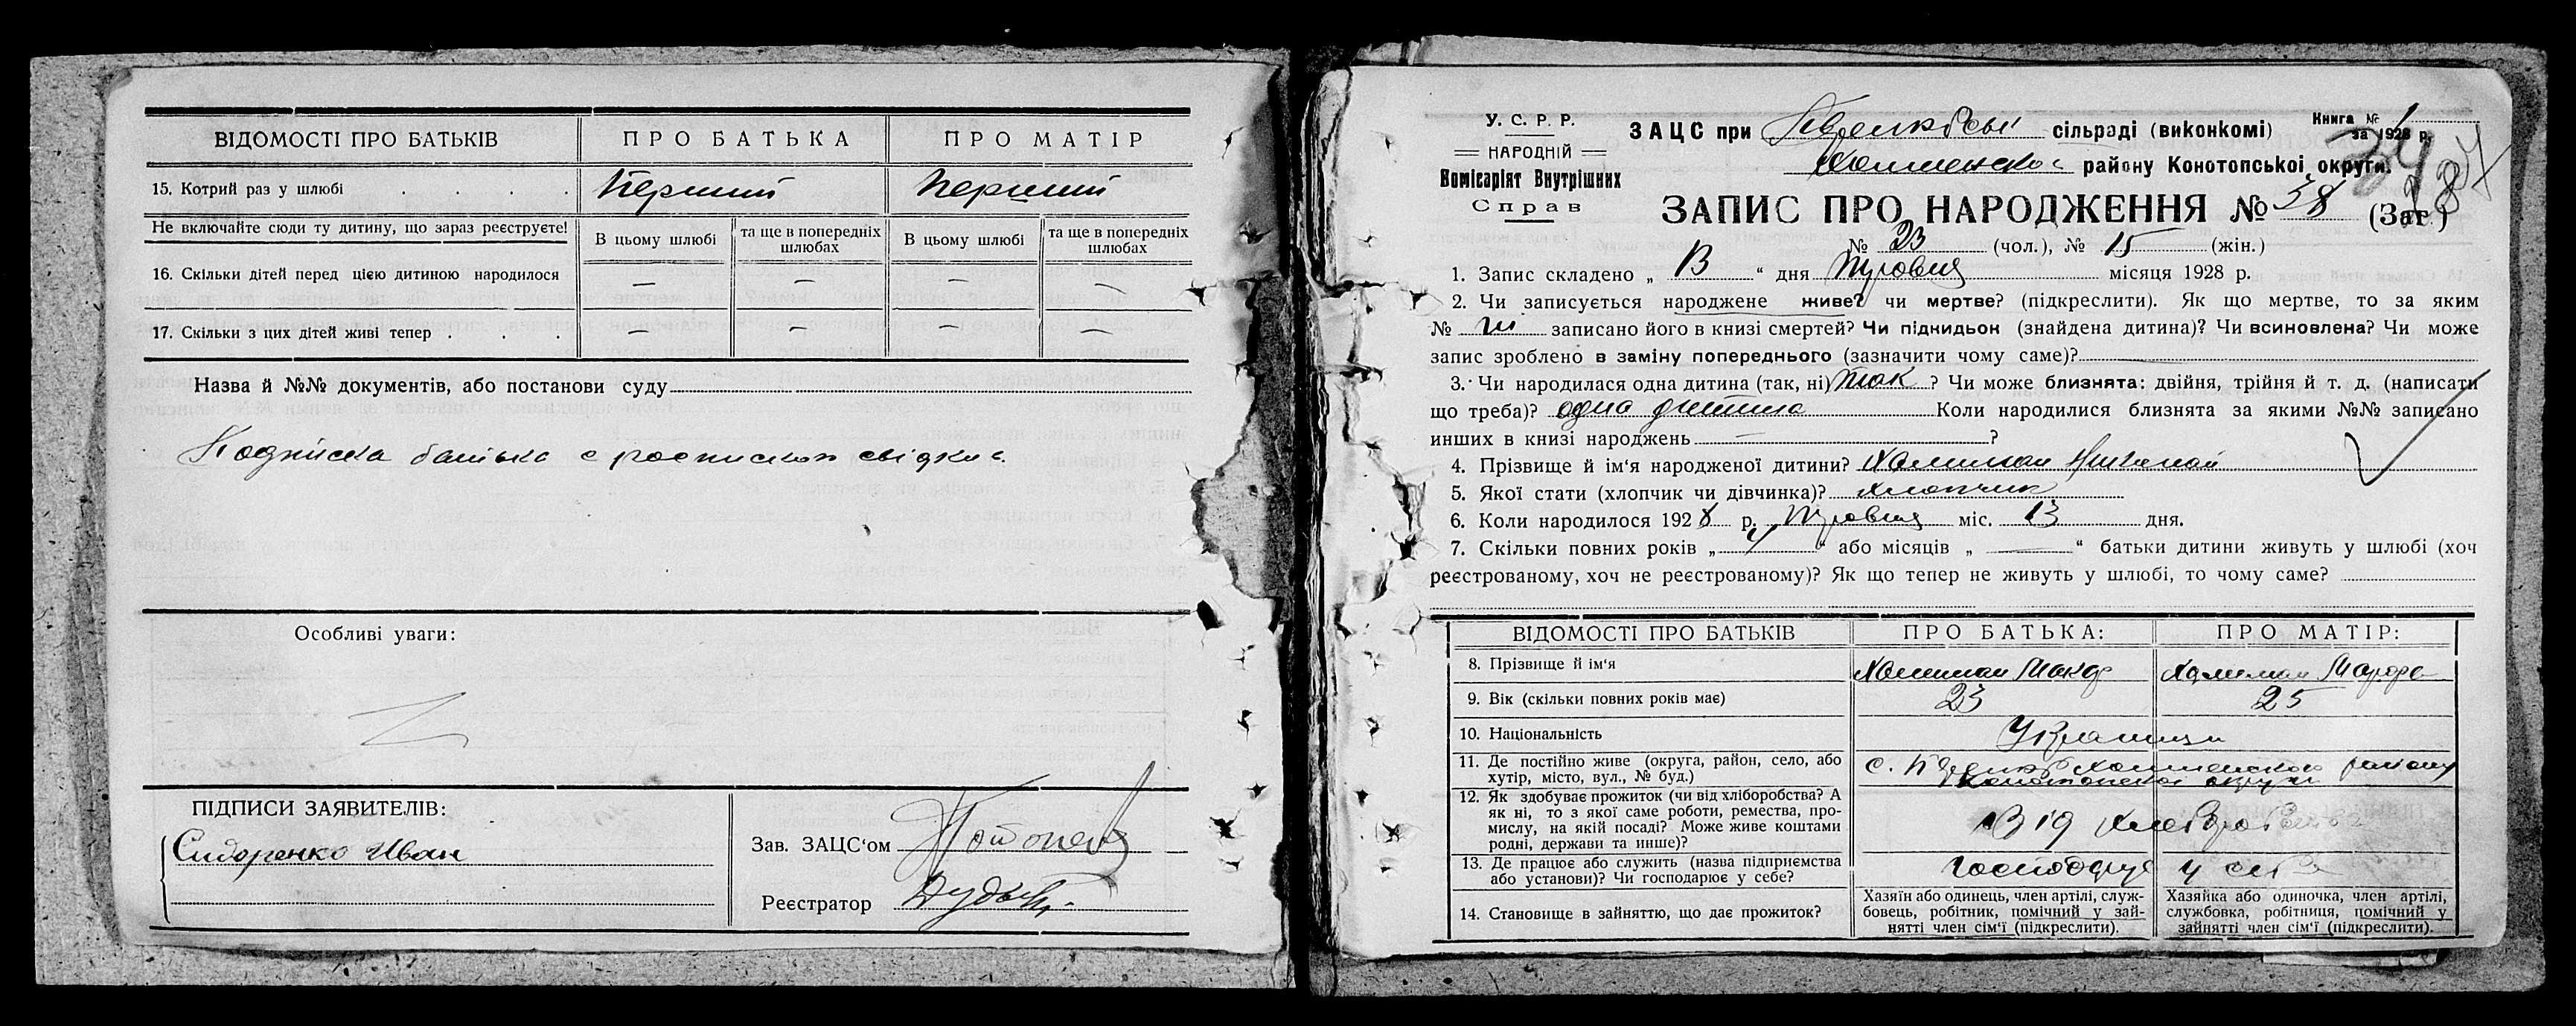 ВІДОМОСТІ ПРО БАТЬКІВ ПРО БАТЬКА ПРО МАТІР
15. Котрий раз у шлюбі Перший Перший
Не включайте сюди ту дитину, що зараз реєструєте! В цьому шлюбі та ще в попередніх шлюбах В цьому шлюбі та ще в попередніх шлюбах
16. Скільки дітей перед цією дитиною народилося — — — —
17. Скільки з цих дітей живі тепер — — — —
Назва й №№ документів, або постанови суду
Подписка батька с
Особливі уваги:
ПІДПИСИ ЗАЯВИТЕЛІВ:
Сидоренко Иван
Зав. ЗАЦС'ом
Реєстратор
У. С. Р. Р.
НАРОДНІЙ
Комісаріят Внутрішних
Справ
ЗАЦС при сільраді (виконкомі)
Книга № 1
за 1928 р.
району Конотопської округи.
ЗАПИС ПРО НАРОДЖЕННЯ № 38 (Заг.)
№ 23 (чол.), № 15 (жін.)
1. Запис складено „ “ дня місяця 1928 р.
2. Чи записується народжене живе? чи мертве? (підкреслити). Як що мертве, то за яким
№ записано його в книзі смертей? Чи підкидьок (знайдена дитина)? Чи всиновлена? Чи може
запис зроблено в заміну попереднього (зазначити чому саме)?
3. Чи народилася одна дитина (так, ні) так ? Чи може близнята: двійня, трійня й т. д. (написати
що треба)? одна дитина Коли народилися близнята за якими №№ записано
инших в книзі народжень — ?
4. Прізвище й ім'я народженої дитини? Халиман
5. Якої стати (хлопчик чи дівчинка)? хлопчик
6. Коли народилося 1928 р. міс. 13 дня.
7. Скільки повних років „ “ або місяців „ — “ батьки дитини живуть у шлюбі (хоч
реєстрованому, хоч не реєстрованому)? Як що тепер не живуть у шлюбі, то чому саме?
ВІДОМОСТІ ПРО БАТЬКІВ ПРО БАТЬКА: ПРО МАТІР:
8. Прізвище й ім'я Халиман Макар Халиман Марфа
9. Вік (скільки повних років має) 23 25
10. Національність Українци
11. Де постійно живе (округа, район, село, або
хутір, місто, вул., № буд.) с. району
Конотопської округи
12. Як здобуває прожиток (чи від хліборобства? А
як ні, то з якої саме роботи, ремества, про-
мислу, на якій посаді? Може живе коштами
родні, держави та инше)? Від хліборобства
13. Де працює або служить (назва підприємства
або установи)? Чи господарює у себе? Господарує у себе
14. Становище в зайняттю, що дає прожиток?
Хазяїн або одинець, член артілі, служ-
бовець, робітник, помічний у зай-
нятті член сім'ї (підкреслити).
Хазяйка або одиночка, член артілі,
службовка, робітниця, помічний у
зайнятті член сім'ї (підкреслити).